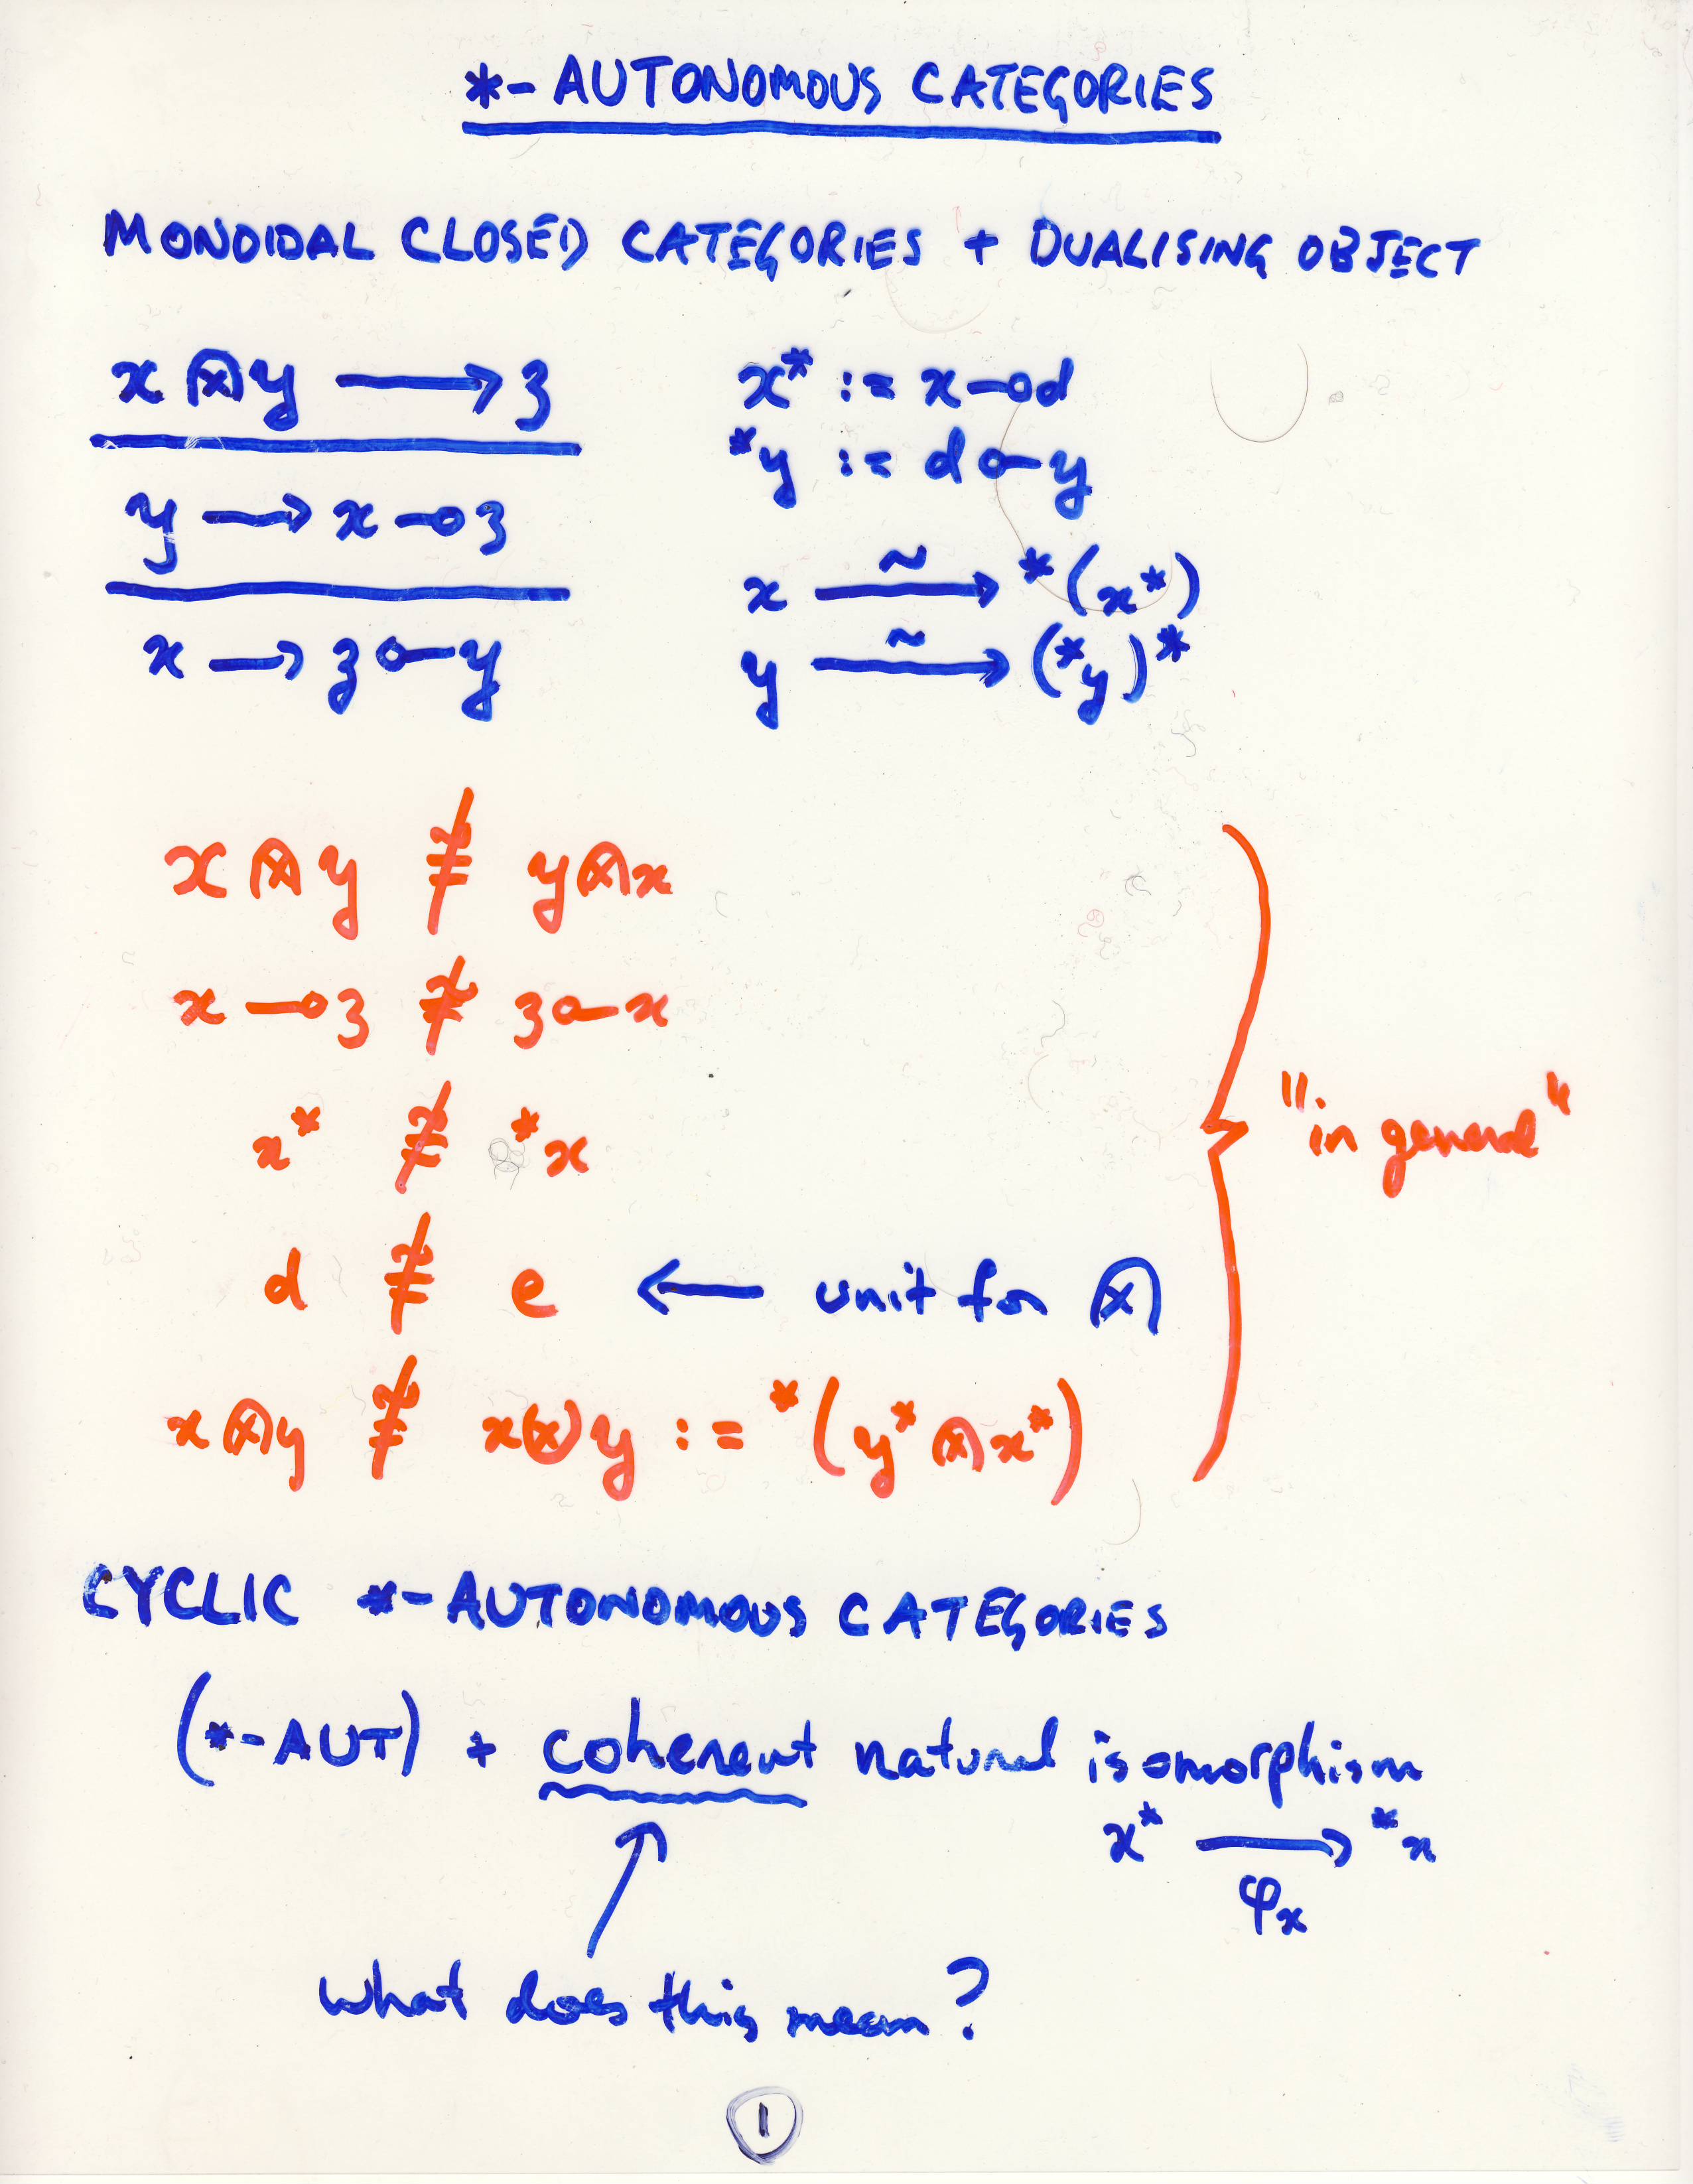 *- AUTONOMOUS CATEGORIES
MONOIDAL CLOSED CATEGORIES + DUALISING OBJECT
x ⊗ y ⟶ z
y ⟶ x ⊸ z
x ⟶ z ⟜ y
x* := x ⊸ d
*y := d ⟜ y
x ⥲ *(x*)
y ⥲ (*y)*
x ⊗ y ≇ y ⊗ x
x ⊸ z ≇ z ⟜ x
x* ≇ *x
d ≇ e ⟵ unit for ⊗
x ⊗ y ≇ x (x) y := *(y* ⊗ x*)
"in general"
CYCLIC *-AUTONOMOUS CATEGORIES
(*-AUT) + coherent natural isomorphism
x* ⟶ *x
φx
what does this mean?
1